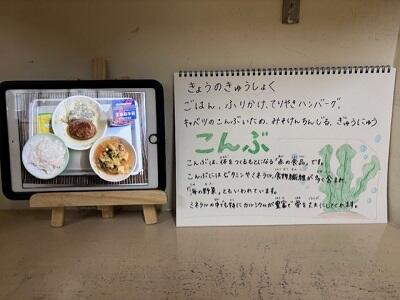 きょうのきゅうしょく
ごはん、ふりかけ、てりやきハンバーグ、
キャベツのこんぶいため、みそけんちんじる、ぎゅうにゅう
こんぶ
こんぶは、体をつくるもとになる「赤の食品」です。
こんぶにはビタミンやミネラル、食物繊維が多く含まれ
「海の野菜」ともいわれています。
ミネラルの中でも特にカルシウムが豊富で骨を丈夫にしてくれます。